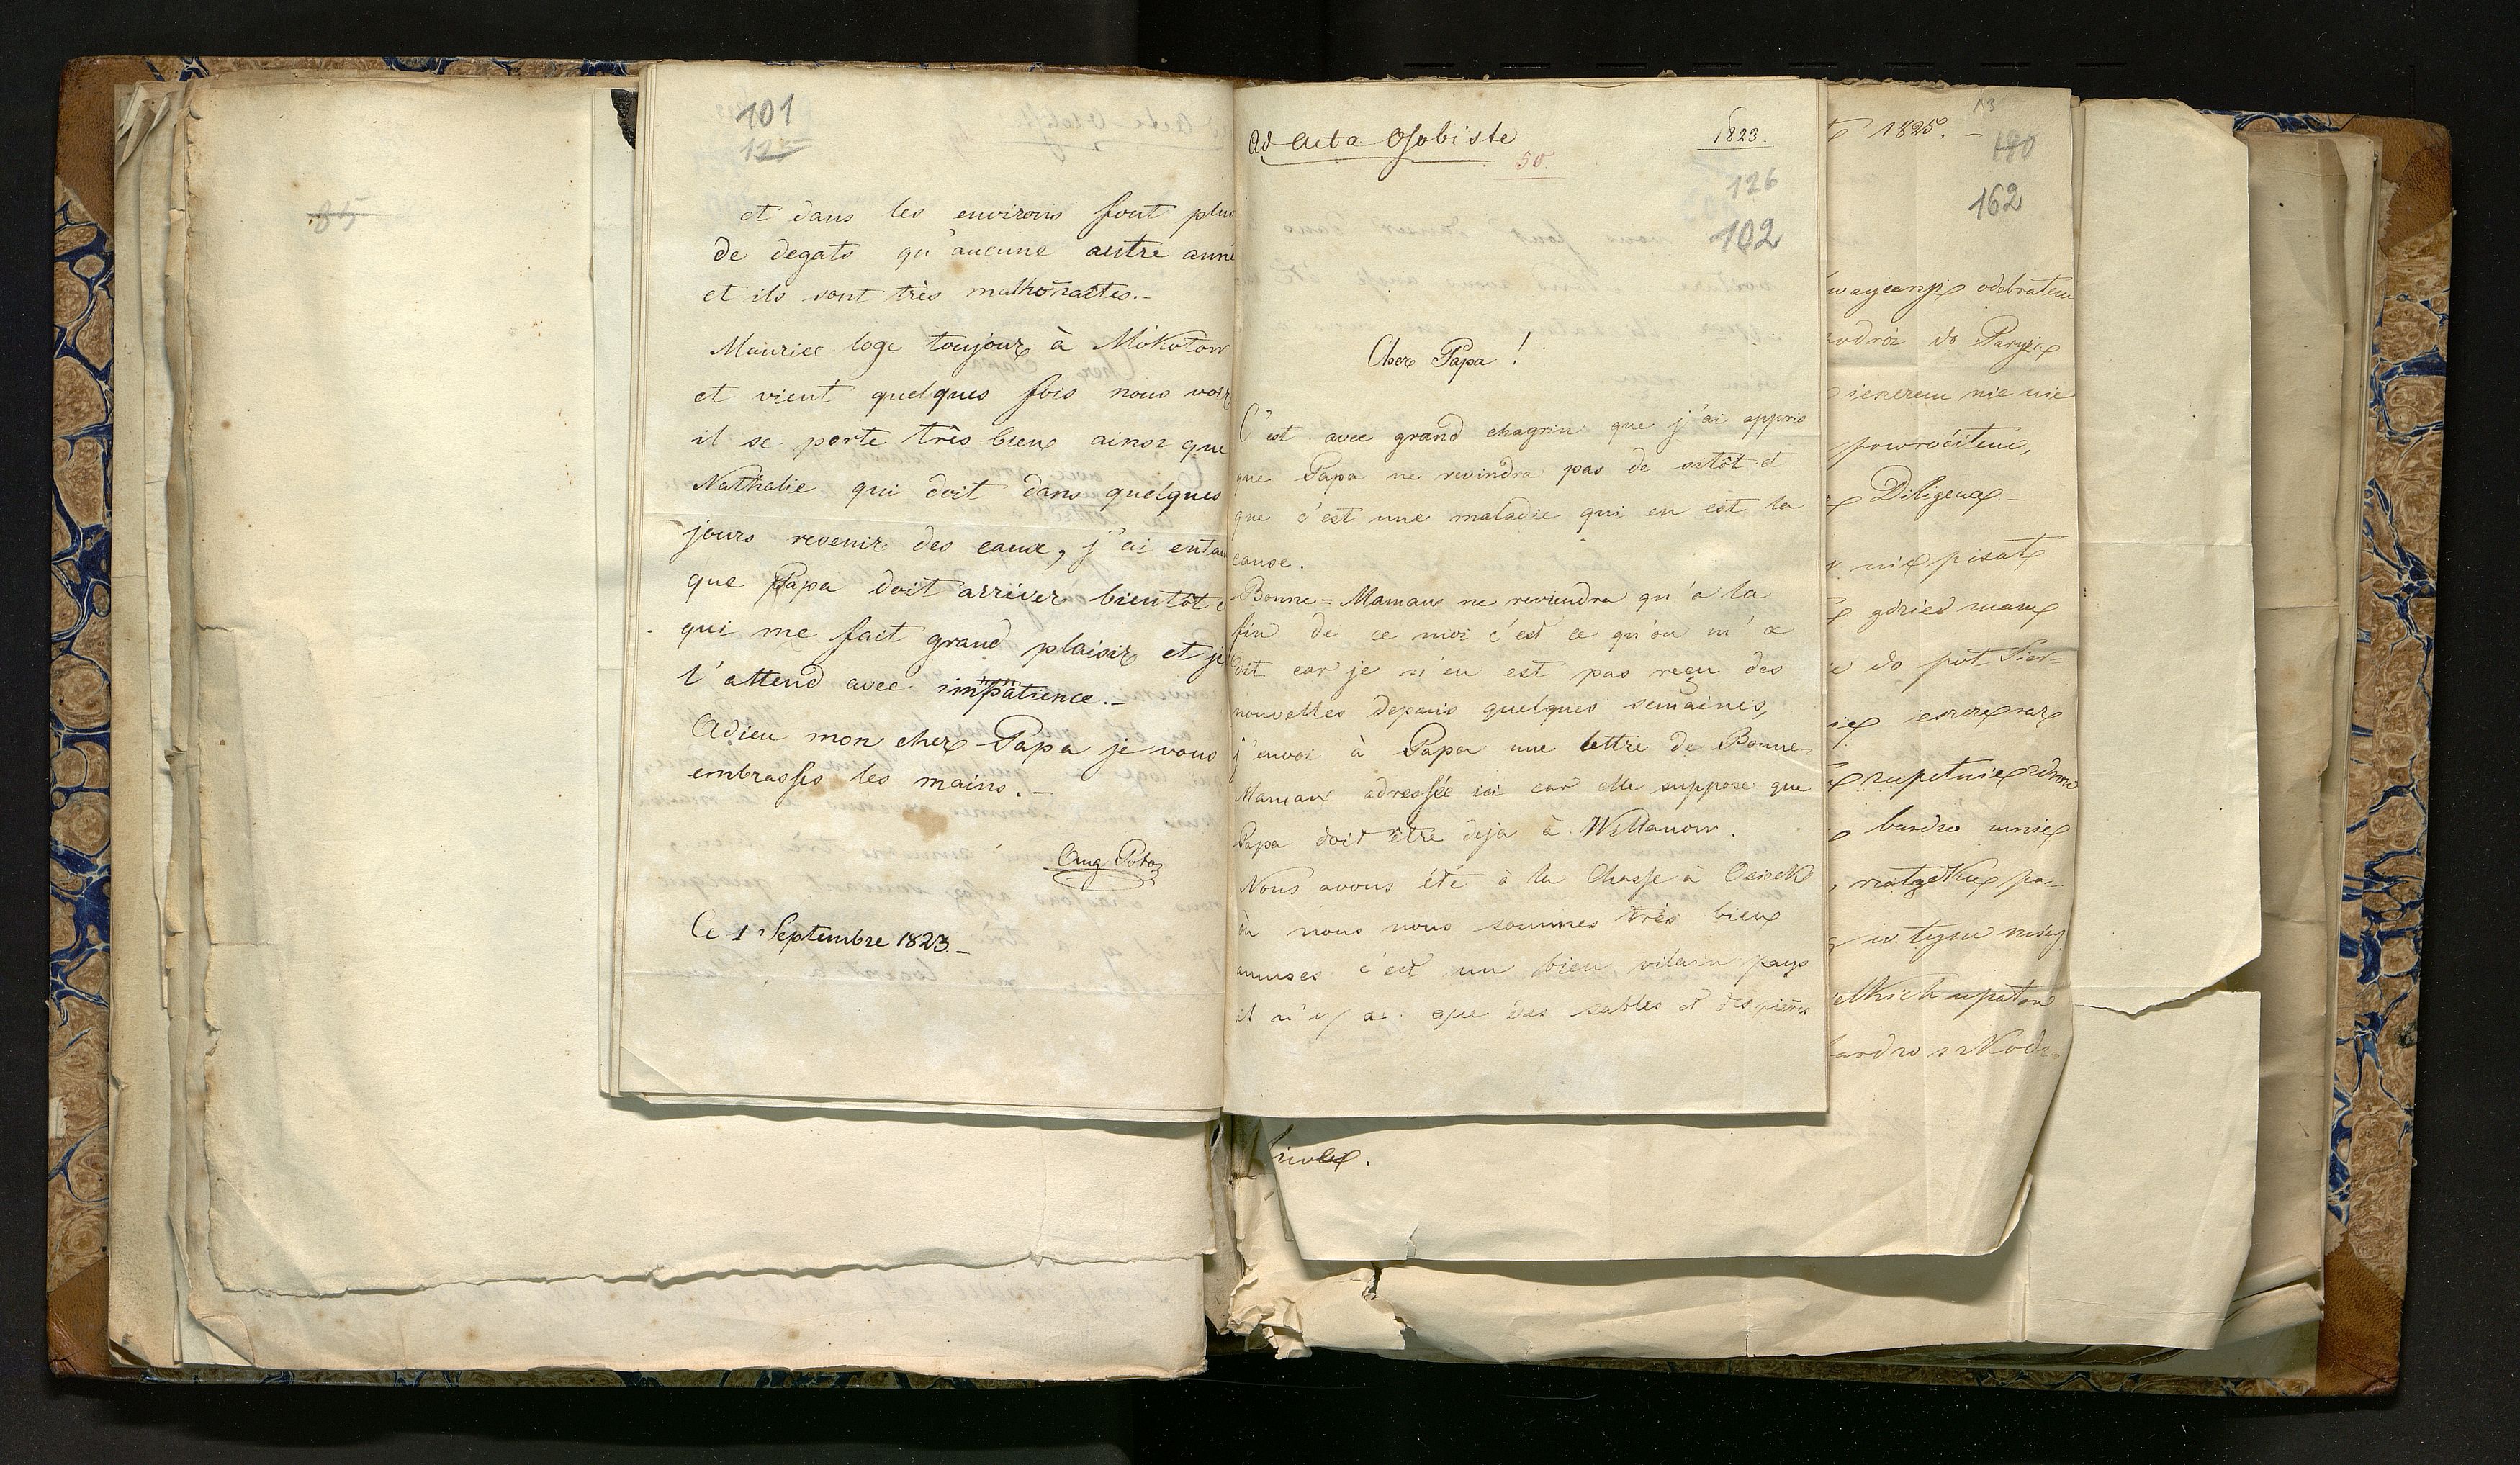 85
101
125
et dans les environs font plus
de degats qu'aucune autre anné
et ils sont très malhonaetes.-
Maurice loge toujour à Mokotow
et vient quelques fois nous voir
il se porte très bien ainsi que
Nathalie qui doit dans quelques
jours revenir des eaux, j'ai entan
que Papa doit arriver bientôt c
qui me fait grand plaisir et je
l'attend avec impatience.-
Adieu mon cher Papa je vous
embrasses les mains.-
Aug Potoz
Ce 1 Septembre 1823.-
Ad Acta Osobiste
50.
1823.
126
102
Cher Papa !
C'est avec grand chagrin que j'ai appris
que Papa ne revindra pas de sitôt et
que c'est une maladie qui en est la
cause.
Bonne=Maman ne reviendra qu'a la
fin de ce moi c'est ce qu'on m'a
dit car je n'en est pas reçu des
nouvelles depuis quelques semaines,
j'envoi à Papa une lettre de Bonne-
Maman adressée ici car elle suppose que
Papa doit être deja à Willanow.
Nous avons été à la Chasse à Osieck
où nous nous sommes très bien
amuses c'est un bien vilain pays
il n'y a que des sables et des pierres
1825.-
13
180
162
odebrałem
do Paryża
nie nie
powróciłem,
Diligence.-
pisał
gdzieś mam
do pół Sier=
ieszcze raz
zupełnie zdrow
bardzo mnie
, majątku po-
w tym
upałow